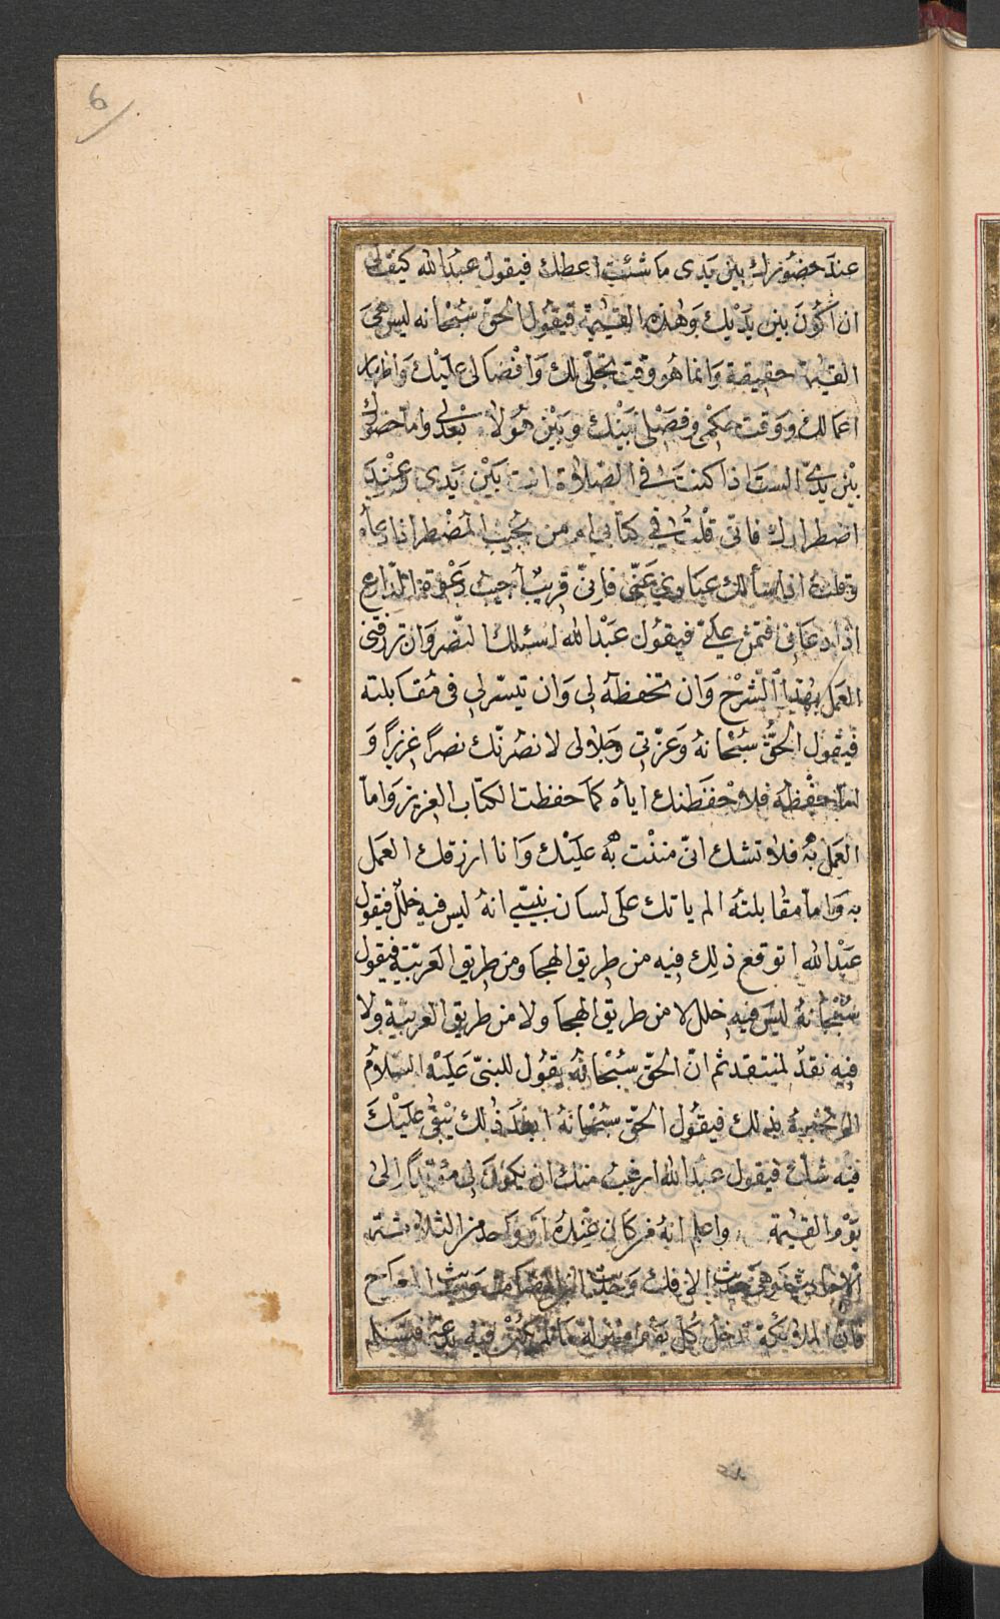 6
عند حضورك بين يدى ما شئت اعطك فيقول عبد الله كيف لى
ان اكون بين يديك وهذه القيمة فيقول الحق سبحانه ليس هى
القيمة حقيقة وانما هو وقت تجلى لك وافضالى عليك واظهار
اعمالك ووقت حكمى وفصلى بينك وبين هولا بعدلى واما حضورك
بين يدىّ الست اذا كنت فى الصلاة انت بين يدى وعند
اضطرارك فانى قلت فى كتابى ام من يجيب المضطر اذا دعاه
وقلت اذا سألك عبادى عنّى فانّى قريب أجيب دعوة الداع
اذا دعانى فتمن علىّ فيقول عبد الله اسئلك النصر وان ترزقنى
العمل بهذا الشرح وان تحفظه لى وان تيسر لى فى مقابلته
فيقول الحق سبحانه وعزتى وجلالى لانصرنك نصراً عزيزاً و
اما حفظه فلاحفظنك اياه كما حفظت الكتاب العزيز واما
العمل به فلا تشك انى مننت به عليك وانا ارزقك العمل
به واما مقابلته الم ياتك على لسان نبيى انه ليس فيه خلل فيقول
عبد الله اتوقع ذلك فيه من طريق الهجا ومن طريق العربية فيقول
سبحانه ليس فيه خلل لا من طريق الهجا ولا من طريق العربية ولا
فيه نقد لمنتقد ثم ان الحق سبحانه يقول للنبى عليه السلام
الم تخبره بذلك فيقول الحق سبحانه ابعد ذلك يبقى عليك
فيه شك فيقول عبد الله ارغب منك ان يكون لى مؤيدا الى
يوم القيمة واعلم انه من كان عنده او واحد من الثلاثة
الاحاديث وهى حديث الافك وحديث وحديث المعراج
فان الملائكة تدخل كل يوم منزله ما لم يكن فيه بدعة فتسلم